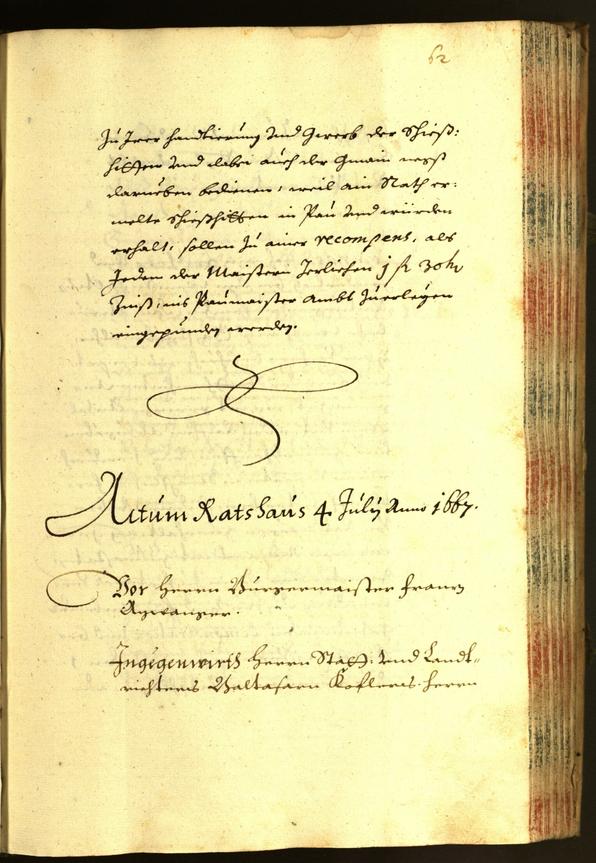 62
Zu Irer handtierung und Gwerb der Schieß:
hitten und dabei auch der Gmain negst
darneben bedienen, weil ain Rath er:
melte Schießhitten in Pau und würden
erhalt, sollen zu ainer recompens, als
Jedem der Maistern Jerlichen 1 fl 30 kr
Zinß, ins Paumaister Ambt zuerlegen
eingepunden werden.
Actum Ratshaus 4 July Anno 1667.
Vor Herrn Burgermaister Franz
Ingegenwirth Herrn Statt: und Landt-
richters Balthasarn Koflers. Herrn